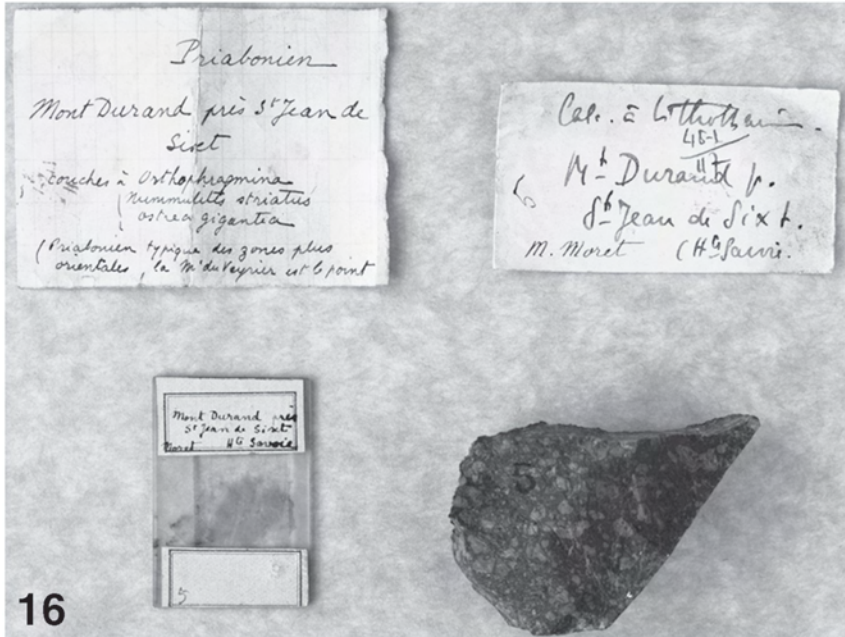 Priabonien
Mont Durand près St Jean de
Sixt
couches à Orthophragmina
Nummulites striatus
ostrea gigantea
(Priabonien typique des zones plus
orientales, la Mt du Veyrier est le point
Calc. à Lithotham.
45-1
Mt Durand p.
5
St Jean de Sixt.
M. Moret (Hte Savoie.
Mont Durand près
St Jean de Sixt
Moret Hte Savoie
5
5
16